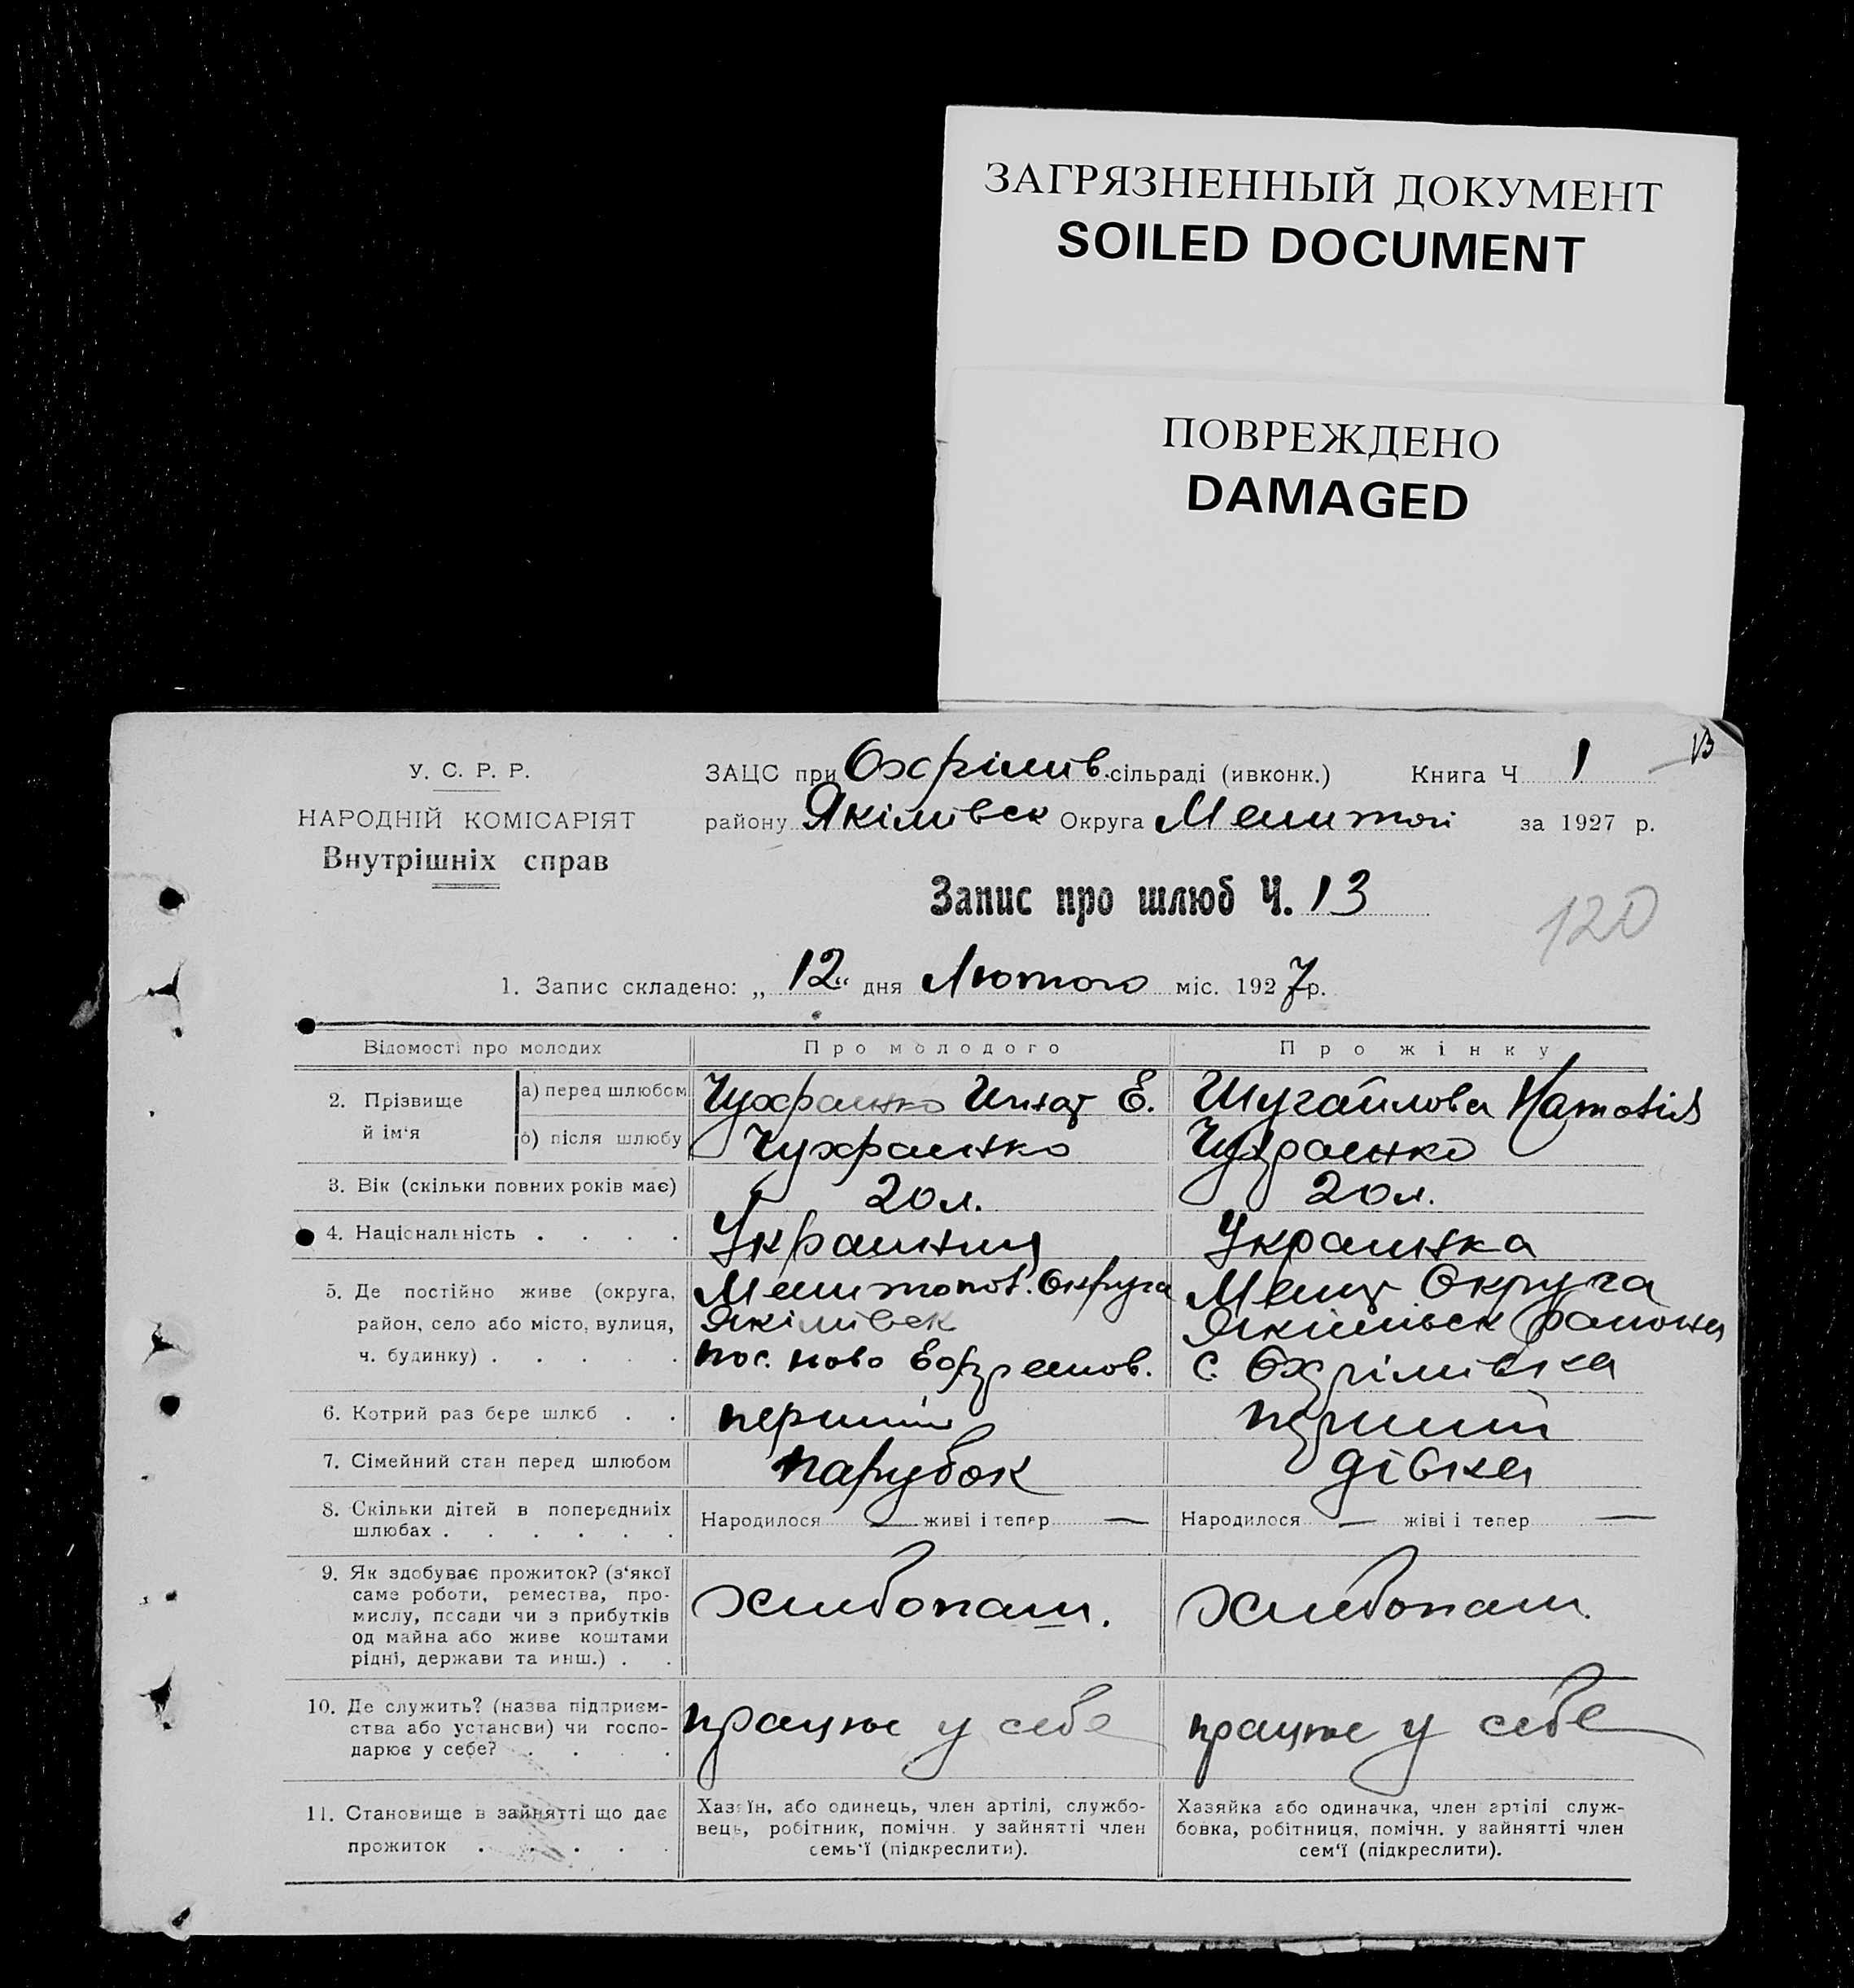 ЗАГРЯЗНЕННЫЙ ДОКУМЕНТ
SOILED DOCUMENT
ПОВРЕЖДЕНО
DAMAGED
13
У. С. Р. Р.
НАРОДНІЙ КОМІСАРІЯТ
Внутрішніх справ
ЗАЦС при Охрімів. сільраді (ивконк.) Книга Ч 1
району Якімівськ Округа Мелитоп за 1927 р.
Запис про шлюб Ч. 13
120
1. Запис складено: „ 12 “ дня Лютого міс. 1927 р.
Відомості про молодих Про молодого Про жінку
2. Прізвище й ім‘я
а) перед шлюбом Чухраенко Игнат Е. Шугайлова Наталія
б) після шлюбу Чухраенко Чухраенко
3. Вік (скільки повних років має) 20 л. 20 л.
4. Національність . . . . Українець Українка
5. Де постійно живе (округа, Мелитопол. Округа Мелит Округа
район, село або місто, вулиця, Якімівськ Якимівськ района
ч. будинку) . . . . . пос. Ново Ефремов. с. Охрімівка
6. Котрий раз бере шлюб . . перший перший
7. Сімейний стан перед шлюбом парубок дівка
8. Скільки дітей в попередниіх
шлюбах . . . . . . Народилося — живі і тепер — Народилося — жіві і тепер —
9. Як здобуває прожиток? (з‘якої
саме роботи, ремества, про-
мислу, посади чи з прибутків
од майна або живе коштами
рідні, держави та инш.) . .
хлибопаш. хлибопаш.
10. Де служить? (назва підприєм-
ства або установи) чи госпо-
дарює у себе? . . . .
працює у себе працює у себе
11. Становище в зайнятті що дає
прожиток . . . . .
Хазяїн, або одинець, член артілі, службо-
вець, робітник, помічн. у зайнятті член
семь‘ї (підкреслити).
Хазяйка або одиначка, член артілі служ-
бовка, робітниця, помічн. у зайнятті член
сем‘ї (підкреслити).